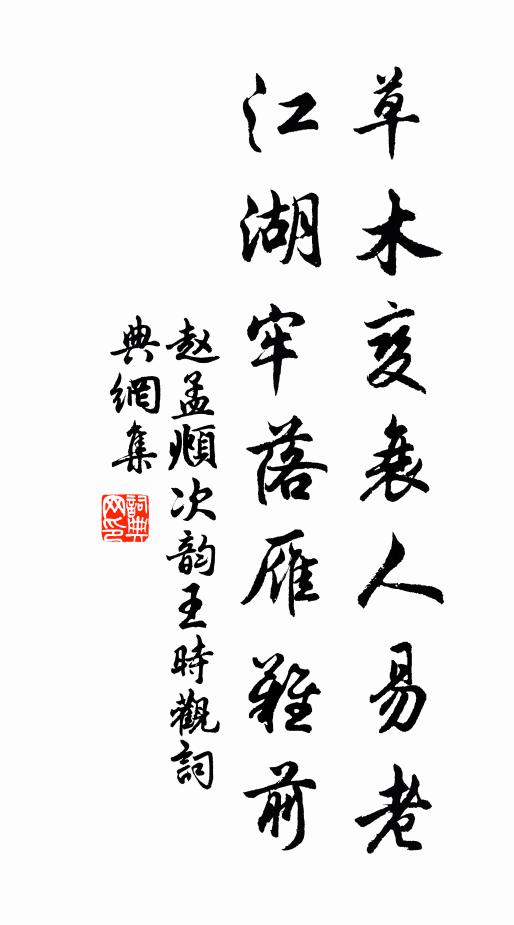 草木變衰人易老
江湖牢落雁難前
赵孟頫次韵王時觀詞
典網集
詞典網印